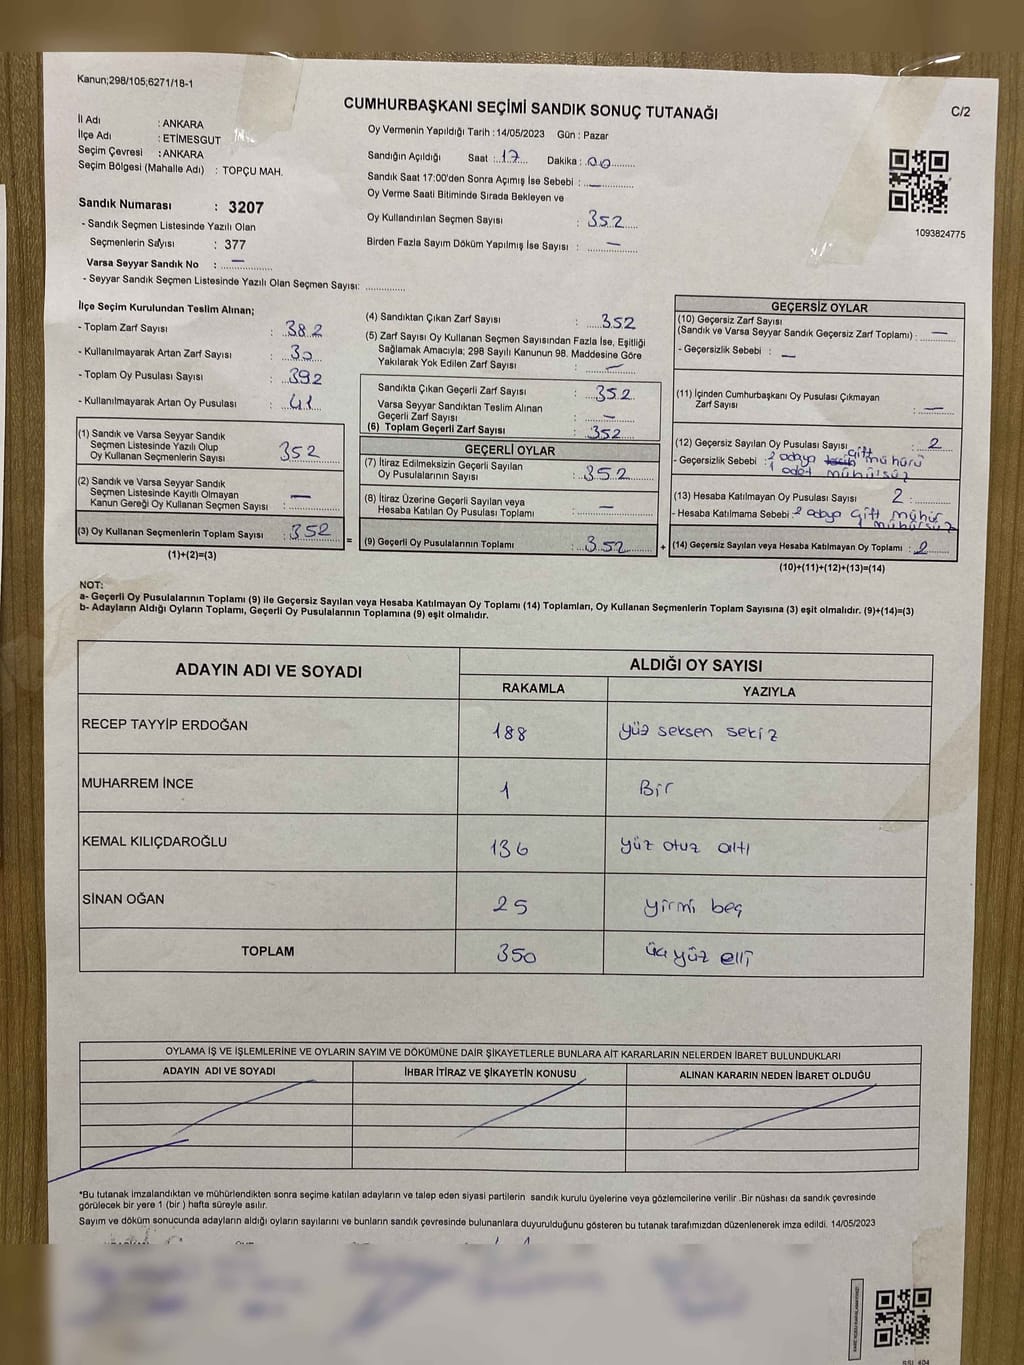 Kanun;298/105;6271/18-1
CUMHURBAŞKANI SEÇİMİ SANDIK SONUÇ TUTANAĞI
C/2
İl Adı : ANKARA
İlçe Adı : ETİMESGUT
Seçim Çevresi : ANKARA
Seçim Bölgesi (Mahalle Adı) : TOPÇU MAH.
Sandık Numarası : 3207
- Sandık Seçmen Listesinde Yazılı Olan
Seçmenlerin Sayısı : 377
Varsa Seyyar Sandık No : —
- Seyyar Sandık Seçmen Listesinde Yazılı Olan Seçmen Sayısı: ..............
Oy Vermenin Yapıldığı Tarih : 14/05/2023 Gün : Pazar
Sandığın Açıldığı Saat : 17 Dakika : 00
Sandık Saat 17:00'den Sonra Açımış İse Sebebi : —
Oy Verme Saati Bitiminde Sırada Bekleyen ve
Oy Kullandırılan Seçmen Sayısı : 352
Birden Fazla Sayım Döküm Yapılmış İse Sayısı : —
1093824775
İlçe Seçim Kurulundan Teslim Alınan;
- Toplam Zarf Sayısı : 382
- Kullanılmayarak Artan Zarf Sayısı : 30
- Toplam Oy Pusulası Sayısı : 392
- Kullanılmayarak Artan Oy Pusulası : 41
(1) Sandık ve Varsa Seyyar Sandık
Seçmen Listesinde Yazılı Olup
Oy Kullanan Seçmenlerin Sayısı 352
(2) Sandık ve Varsa Seyyar Sandık
Seçmen Listesinde Kayıtlı Olmayan
Kanun Gereği Oy Kullanan Seçmen Sayısı : —
(3) Oy Kullanan Seçmenlerin Toplam Sayısı : 352 =
(1)+(2)=(3)
(4) Sandıktan Çıkan Zarf Sayısı : 352
(5) Zarf Sayısı Oy Kullanan Seçmen Sayısından Fazla İse, Eşitliği
Sağlamak Amacıyla; 298 Sayılı Kanunun 98. Maddesine Göre
Yakılarak Yok Edilen Zarf Sayısı : —
Sandıkta Çıkan Geçerli Zarf Sayısı : 352
Varsa Seyyar Sandıktan Teslim Alınan
Geçerli Zarf Sayısı : —
(6) Toplam Geçerli Zarf Sayısı : 352
GEÇERLİ OYLAR
(7) İtiraz Edilmeksizin Geçerli Sayılan
Oy Pusulalarının Sayısı : 352
(8) İtiraz Üzerine Geçerli Sayılan veya
Hesaba Katılan Oy Pusulası Toplamı : —
(9) Geçerli Oy Pusulalarının Toplamı : 352 +
GEÇERSİZ OYLAR
(10) Geçersiz Zarf Sayısı
(Sandık ve Varsa Seyyar Sandık Geçersiz Zarf Toplamı) : —
- Geçersizlik Sebebi : —
(11) İçinden Cumhurbaşkanı Oy Pusulası Çıkmayan
Zarf Sayısı : —
(12) Geçersiz Sayılan Oy Pusulası Sayısı : 2
- Geçersizlik Sebebi : 2 adaya çift mühürü
1 adet mühülsüz
(13) Hesaba Katılmayan Oy Pusulası Sayısı 2 :
- Hesaba Katılmama Sebebi : 2 adaya çift mühür
mühürsüz
(14) Geçersiz Sayılan veya Hesaba Katılmayan Oy Toplamı : 2
(10)+(11)+(12)+(13)=(14)
NOT:
a- Geçerli Oy Pusulalarının Toplamı (9) ile Geçersiz Sayılan veya Hesaba Katılmayan Oy Toplamı (14) Toplamları, Oy Kullanan Seçmenlerin Toplam Sayısına (3) eşit olmalıdır. (9)+(14)=(3)
b- Adayların Aldığı Oyların Toplamı, Geçerli Oy Pusulalarının Toplamına (9) eşit olmalıdır.
ADAYIN ADI VE SOYADI ALDIĞI OY SAYISI
RAKAMLA YAZIYLA
RECEP TAYYİP ERDOĞAN 188 yüz seksen sekiz
MUHARREM İNCE 1 Bir
KEMAL KILIÇDAROĞLU 136 yüz otuz altı
SİNAN OĞAN 25 yirmi beş
TOPLAM 350 üçyüz elli
OYLAMA İŞ VE İŞLEMLERİNE VE OYLARIN SAYIM VE DÖKÜMÜNE DAİR ŞİKAYETLERLE BUNLARA AİT KARARLARIN NELERDEN İBARET BULUNDUKLARI
ADAYIN ADI VE SOYADI İHBAR İTİRAZ VE ŞİKAYETİN KONUSU ALINAN KARARIN NEDEN İBARET OLDUĞU
*Bu tutanak imzalandıktan ve mühürlendikten sonra seçime katılan adayların ve talep eden siyasi partilerin sandık kurulu üyelerine veya gözlemcilerine verilir .Bir nüshası da sandık çevresinde
görülecek bir yere 1 (bir ) hafta süreyle asılır.
Sayım ve döküm sonucunda adayların aldığı oyların sayılarını ve bunların sandık çevresinde bulunanlara duyurulduğunu gösteren bu tutanak tarafımızdan düzenlenerek imza edildi. 14/05/2023